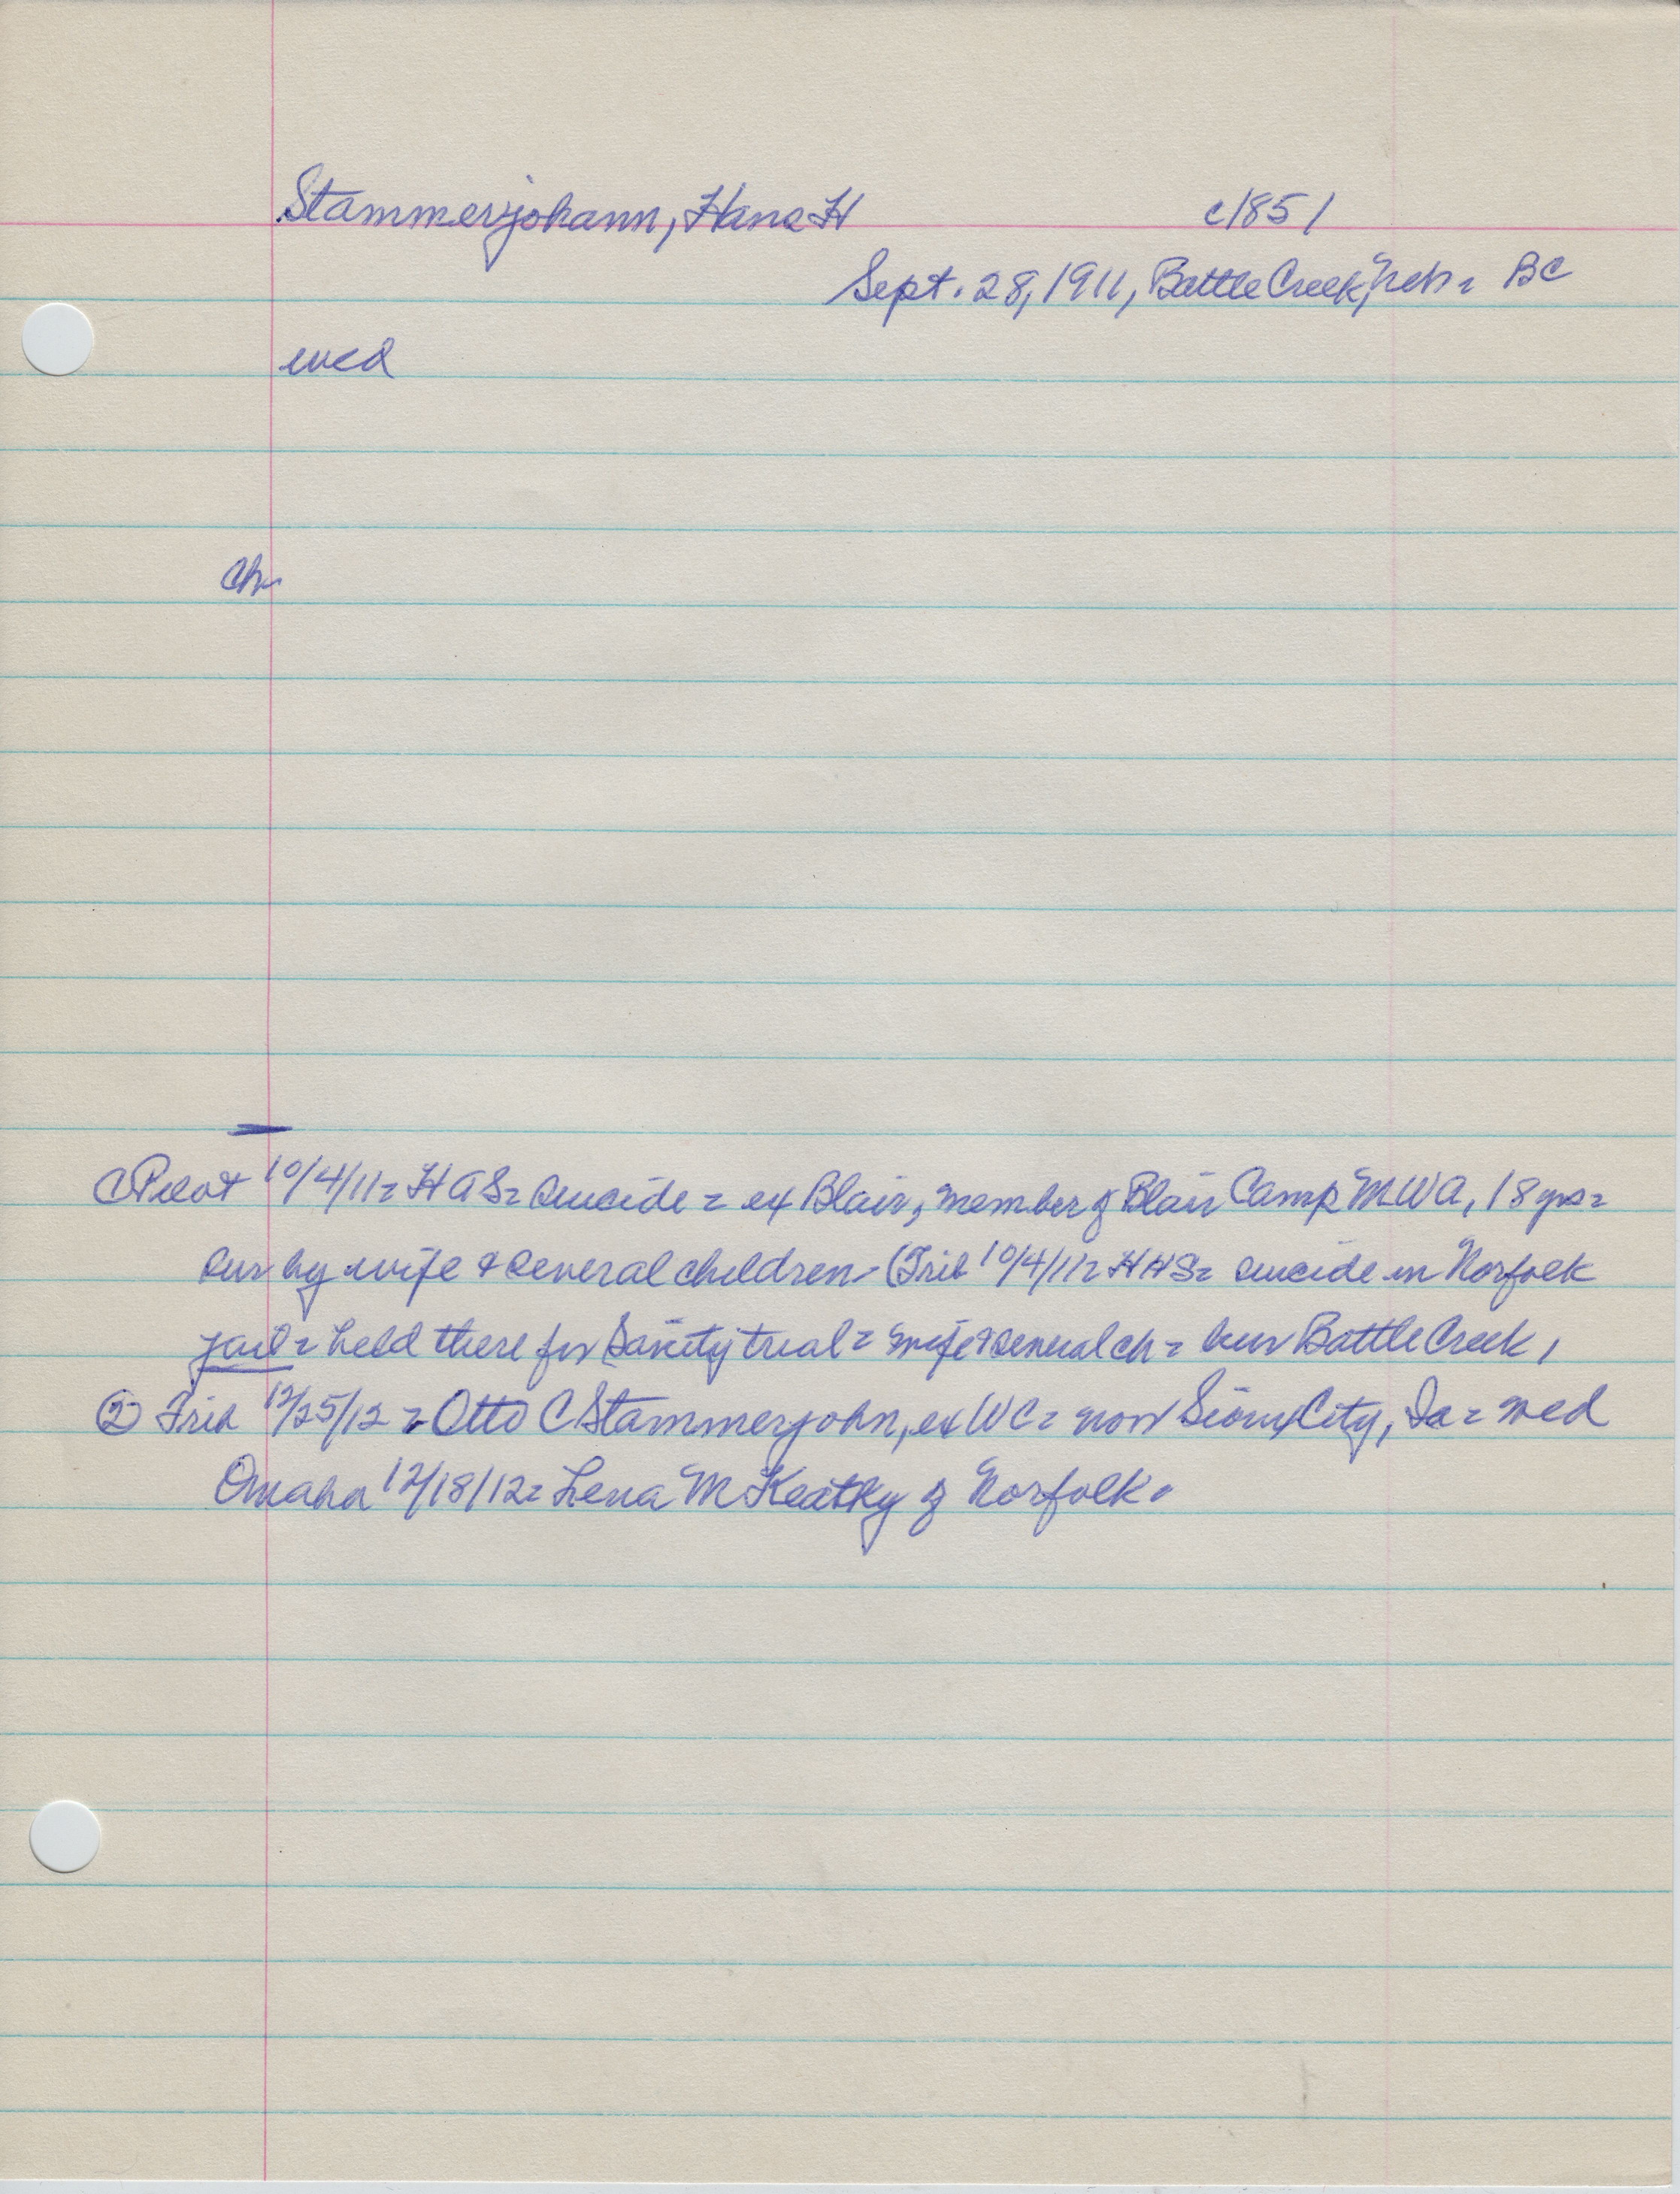 Stammerjohann, Hans H c1851
Sept. 28, 1911, Battle Creek, Neb = BC
wed
Ch-
Pilot 10/4/11 = HAS = suicide = ex Blair, member of Blair Camp MWA, 18 yrs =
sur by wife & several children - (Trib 10/4/11 = HHS = suicide in Norfolk
jail = held there for sanity trial = wife & several ch = bur Battle Creek,
② Trib 12/25/12 = Otto C Stammerjohn, ex WC = now Sioux City, Ia = wed
Omaha 12/18/12 = Lena M of Norfolk.